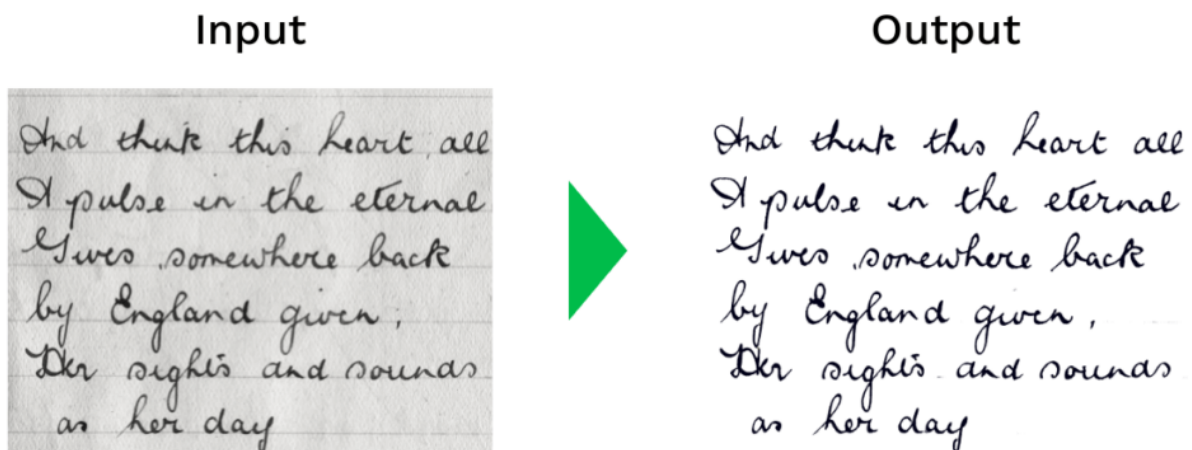 Input
Output
And think this heart, all
A pulse in the eternal
Gives somewhere back
by England given,
Her sights and sounds
as her day
And think this heart all
A pulse in the eternal
Gives somewhere back
by England given,
Her sights and sounds
as her day